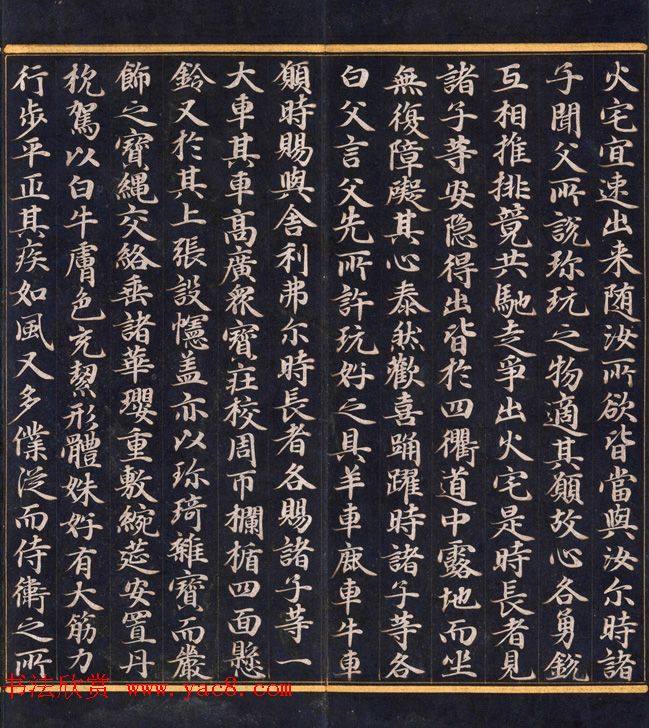 火宅宜速出来随汝所欲皆當與汝尓時諸
子聞父所說珎玩之物適其願故心各勇銳
互相推排竟共馳走爭出火宅是時長者見
諸子等安隐得出皆於四衢道中露地而坐
無復障礙其心泰然歡喜踊躍時諸子等各
白父言父先所許玩好之具羊車鹿車牛車
願時賜與舍利弗尓時長者各賜諸子等一
大車其車高廣衆寶莊校周帀欄楯四面懸
鈴又於其上張設幰盖亦以珎琦雜寶而嚴
飾之寶繩交絡垂諸華瓔重敷綩莚安置丹
枕駕以白牛膚色充潔形體姝好有大筋力
行步平正其疾如風又多僕從而侍衛之所
书法欣赏 www.yac8.com